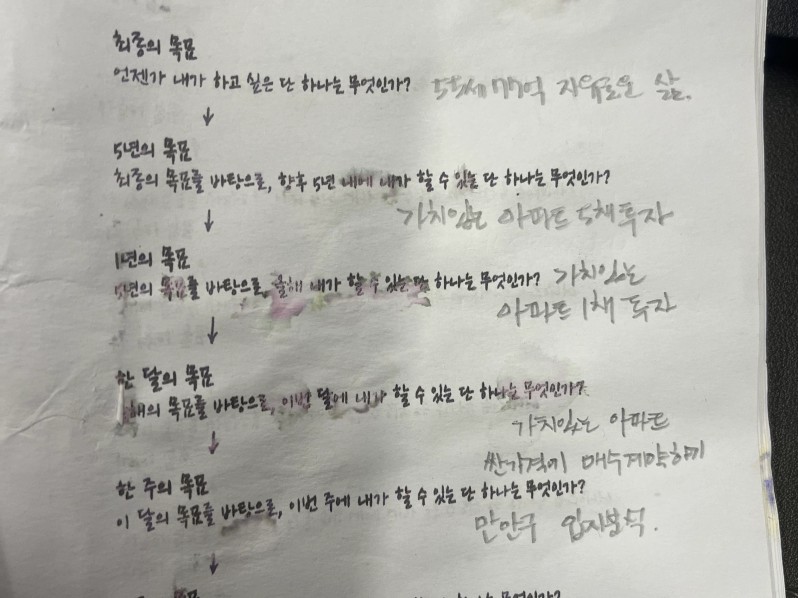 최종의 목표
언젠가 내가 하고 싶은 단 하나는 무엇인가? 55세 77억 자유로운 삶.
↓
5년의 목표
최종의 목표를 바탕으로, 향후 5년 내에 내가 할 수 있는 단 하나는 무엇인가?
↓ 가치있는 아파트 5채 투자
1년의 목표
5년의 목표를 바탕으로, 올해 내가 할 수 있는 단 하나는 무엇인가? 가치있는
아파트 1채 투자
↓
한 달의 목표
해의 목표를 바탕으로, 이번 달에 내가 할 수 있는 단 하나는 무엇인가?
가치있는 아파트
↓ 싼가격에 매수계약하기
한 주의 목표
이 달의 목표를 바탕으로, 이번 주에 내가 할 수 있는 단 하나는 무엇인가?
만안구 입지분석.
↓
목표 무엇인가?